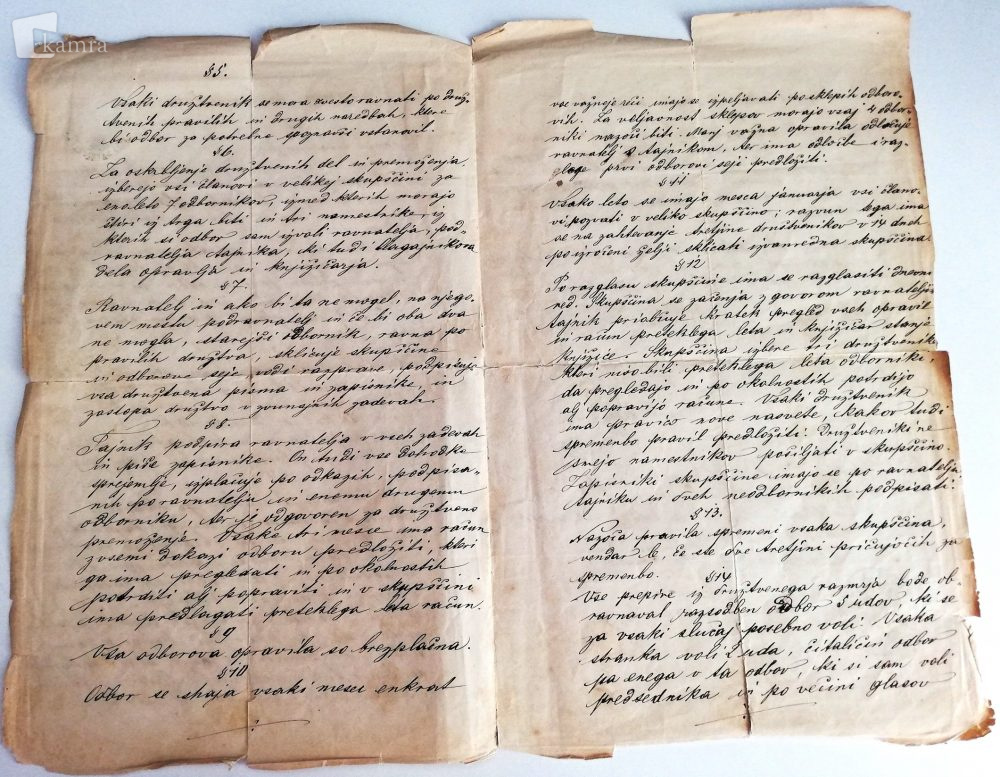 kamra
§ 5.
Vsaki družtvenik se mora zvesto ravnati po druž-
tvenih pravilih in drugih naredbah, ktere
bi odbor za potrebne spoznavši vstanovil.
§ 6.
Za oskrbljenje družtvenih del in premoženja
izberejo vsi članovi v velikej skupščini za
eno leto 7 odbornikov, izmed kterih morajo
štiri iz trga biti in tri namestnike, iz
kterih si odbor sam izvoli ravnatelja, pod-
ravnatelja tajnika, ki tudi blagajnikova
dela opravlja in knjižičarja.
§ 7.
Ravnatelj in ako bi ta ne mogel, na njego-
vem mestu podravnatelj in če bi oba dva
ne mogla, starejši odbornik, ravna po
pravilih družtva, sklicuje skupščine
in odborove seje vodi razprave, podpisuje
vsa družtvena pisma in zapisnike, in
zastopa družtvo v zvunajnih zadevah.
§ 8.
Tajnik podpira ravnatelja v vseh zadevah
in piše zapisnike. On tudi vse dohodke
sprejemlje, izplačuje po odkazih, podpisa-
nih po ravnatelju in enemu drugemu
odborniku, ter je odgovoren za družtveno
premoženje. Vsake tri mesce ima račun
z vsemi dokazi odboru predložiti, kteri
ga ima pregledati in po okolnostih
potrditi alj popraviti in v skupščini
ima predlagati pretehlega leta račun.
§ 9
Vsa odborova opravila so brezplačna.
§ 10
Odbor se shaja vsaki mesec enkrat
vse važneje reči imajo se izpeljavati po sklepih odboro-
vih. Za veljavnost sklepov morajo vsaj 4 odbor-
niki nazoči biti. Manj važna opravila odločuje
ravnatelj s tajnikom, ter ima odločbe i raz-
loge prvi odborovi seje predložiti.
§ 11
Vsako leto se imajo mesca januarja vsi člano-
vi pozvati v veliko skupščino; razvun tega ima
se na zahtevanje tretjine družtvenikov v 14 dneh
po izročeni želji sklicati izvanredna skupščina.
§ 12
Po razglasu skupščine ima se razglasiti dnevni
red. Skupščina se začenja z govorom ravnatelja
tajnik priobčuje kratek pregled vseh opravil
in račun pretehlega leta in knjižičar stanje
knjižice. Skupščina izbere tri družtvenike
kteri niso bili pretehlega leta odborniki,
da pregledajo in po okolnostih potrdijo
alj popravijo račune. Vsaki družtvenik
ima pravico nove nasvete, kakor tudi
spremenbo pravil predložiti. Družtveniki ne
smejo namestnikov pošiljati v skupščino.
Zapisniki skupščine imajo se po ravnatelju
tajniku in dveh neodbornikih podpisati.
§ 13.
Nazoča pravila spremeni vsaka skupščina,
vendar le, če ste dve tretjini pričujočih za
spremenbo.
§ 14
Vse prepire iz družtvenega razmerja bode ob-
ravnaval razsodben odbor 5 udov, ki se
za vsaki slučaj posebno voli. Vsaka
stranka voli 2 uda, čitalični odbor
pa enega v ta odbor, ki si sam voli
predsednika in po večini glasov